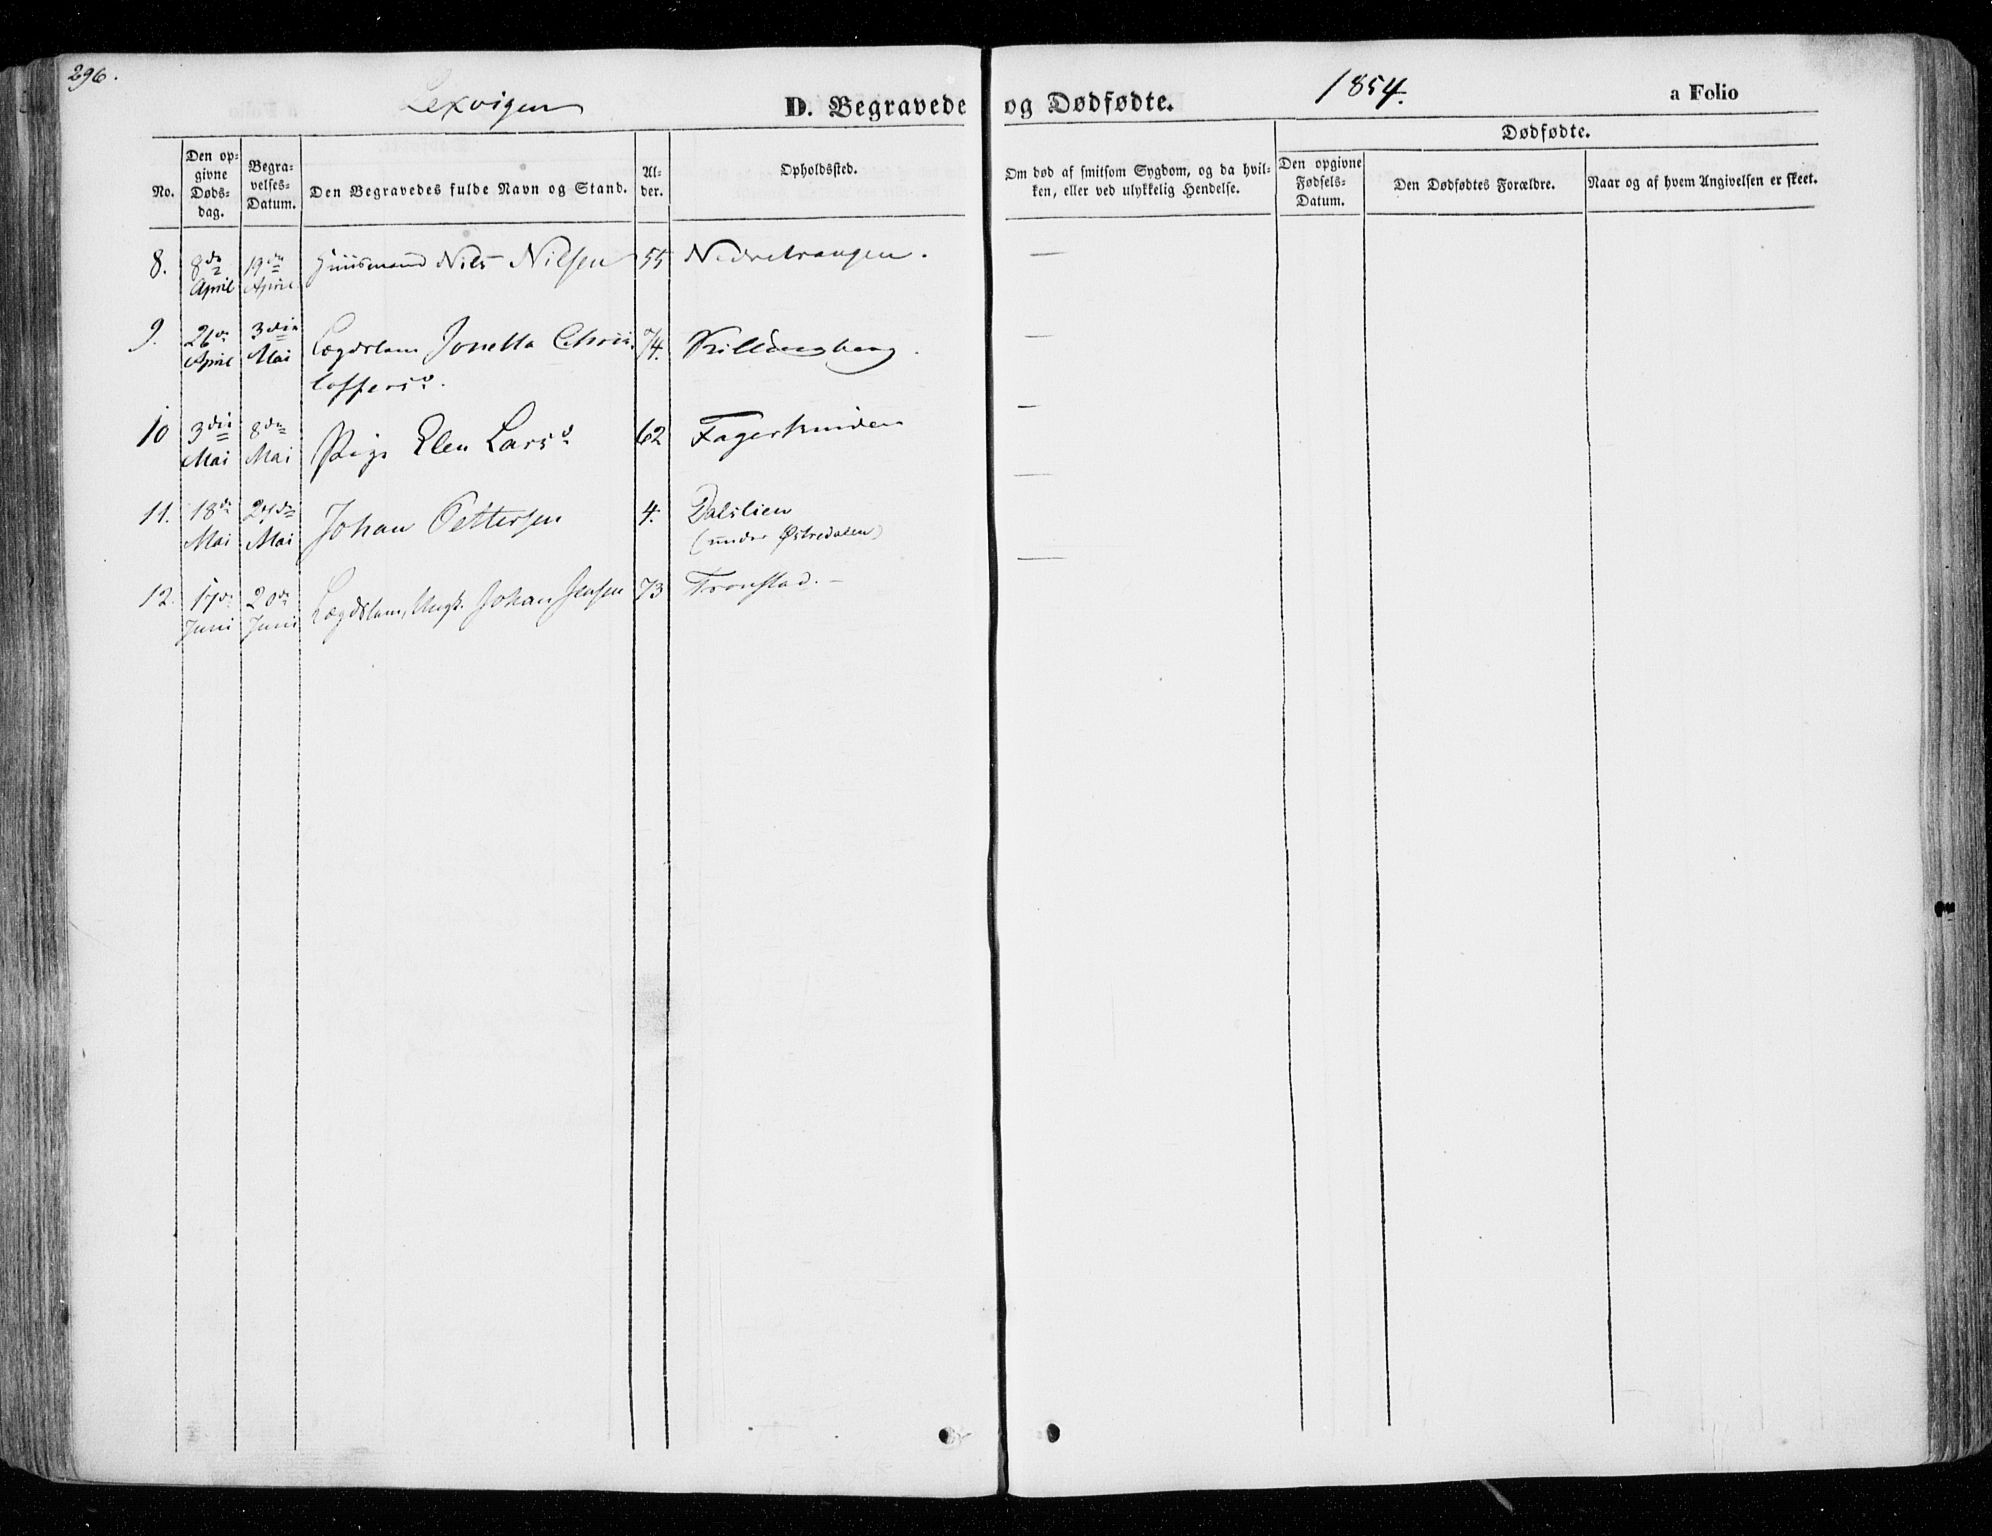 296.
Lexvigen
D. Begravede og Dødfødte.
1854.
a Folio
No.
Den op-
givne
Døds-
dag.
Begra-
velses-
Datum.
Den Begravedes fulde Navn og Stand.
Al-
der.
Opholdssted.
Om død af smitsom Sygdom, og da hvil-
ken, eller ved ulykkelig Hendelse.
Dødfødte.
Den opgivne
Fødsels-
Datum.
Den Dødfødtes Forældre.
Naar og af hvem Angivelsen er skeet.
8. 8de April 19de April Huusmand Nils Nilsen 55 Nedretrangen. —
9. 26de April 3die Mai Lægdslem Jonetta Chris- 74. Killingberg. —
toffersd.
10 3die Mai 8de Mai Pige Elen Larsd. 62 Fagerhuiden —
11. 18de Mai 24de Mai Johan Pettersen 4. Dalslien —
(under Østredalen)
12. 17de Juni 20de Juni Lægdslem, Ungk. Johan Jensen 73 Tronstad. — —